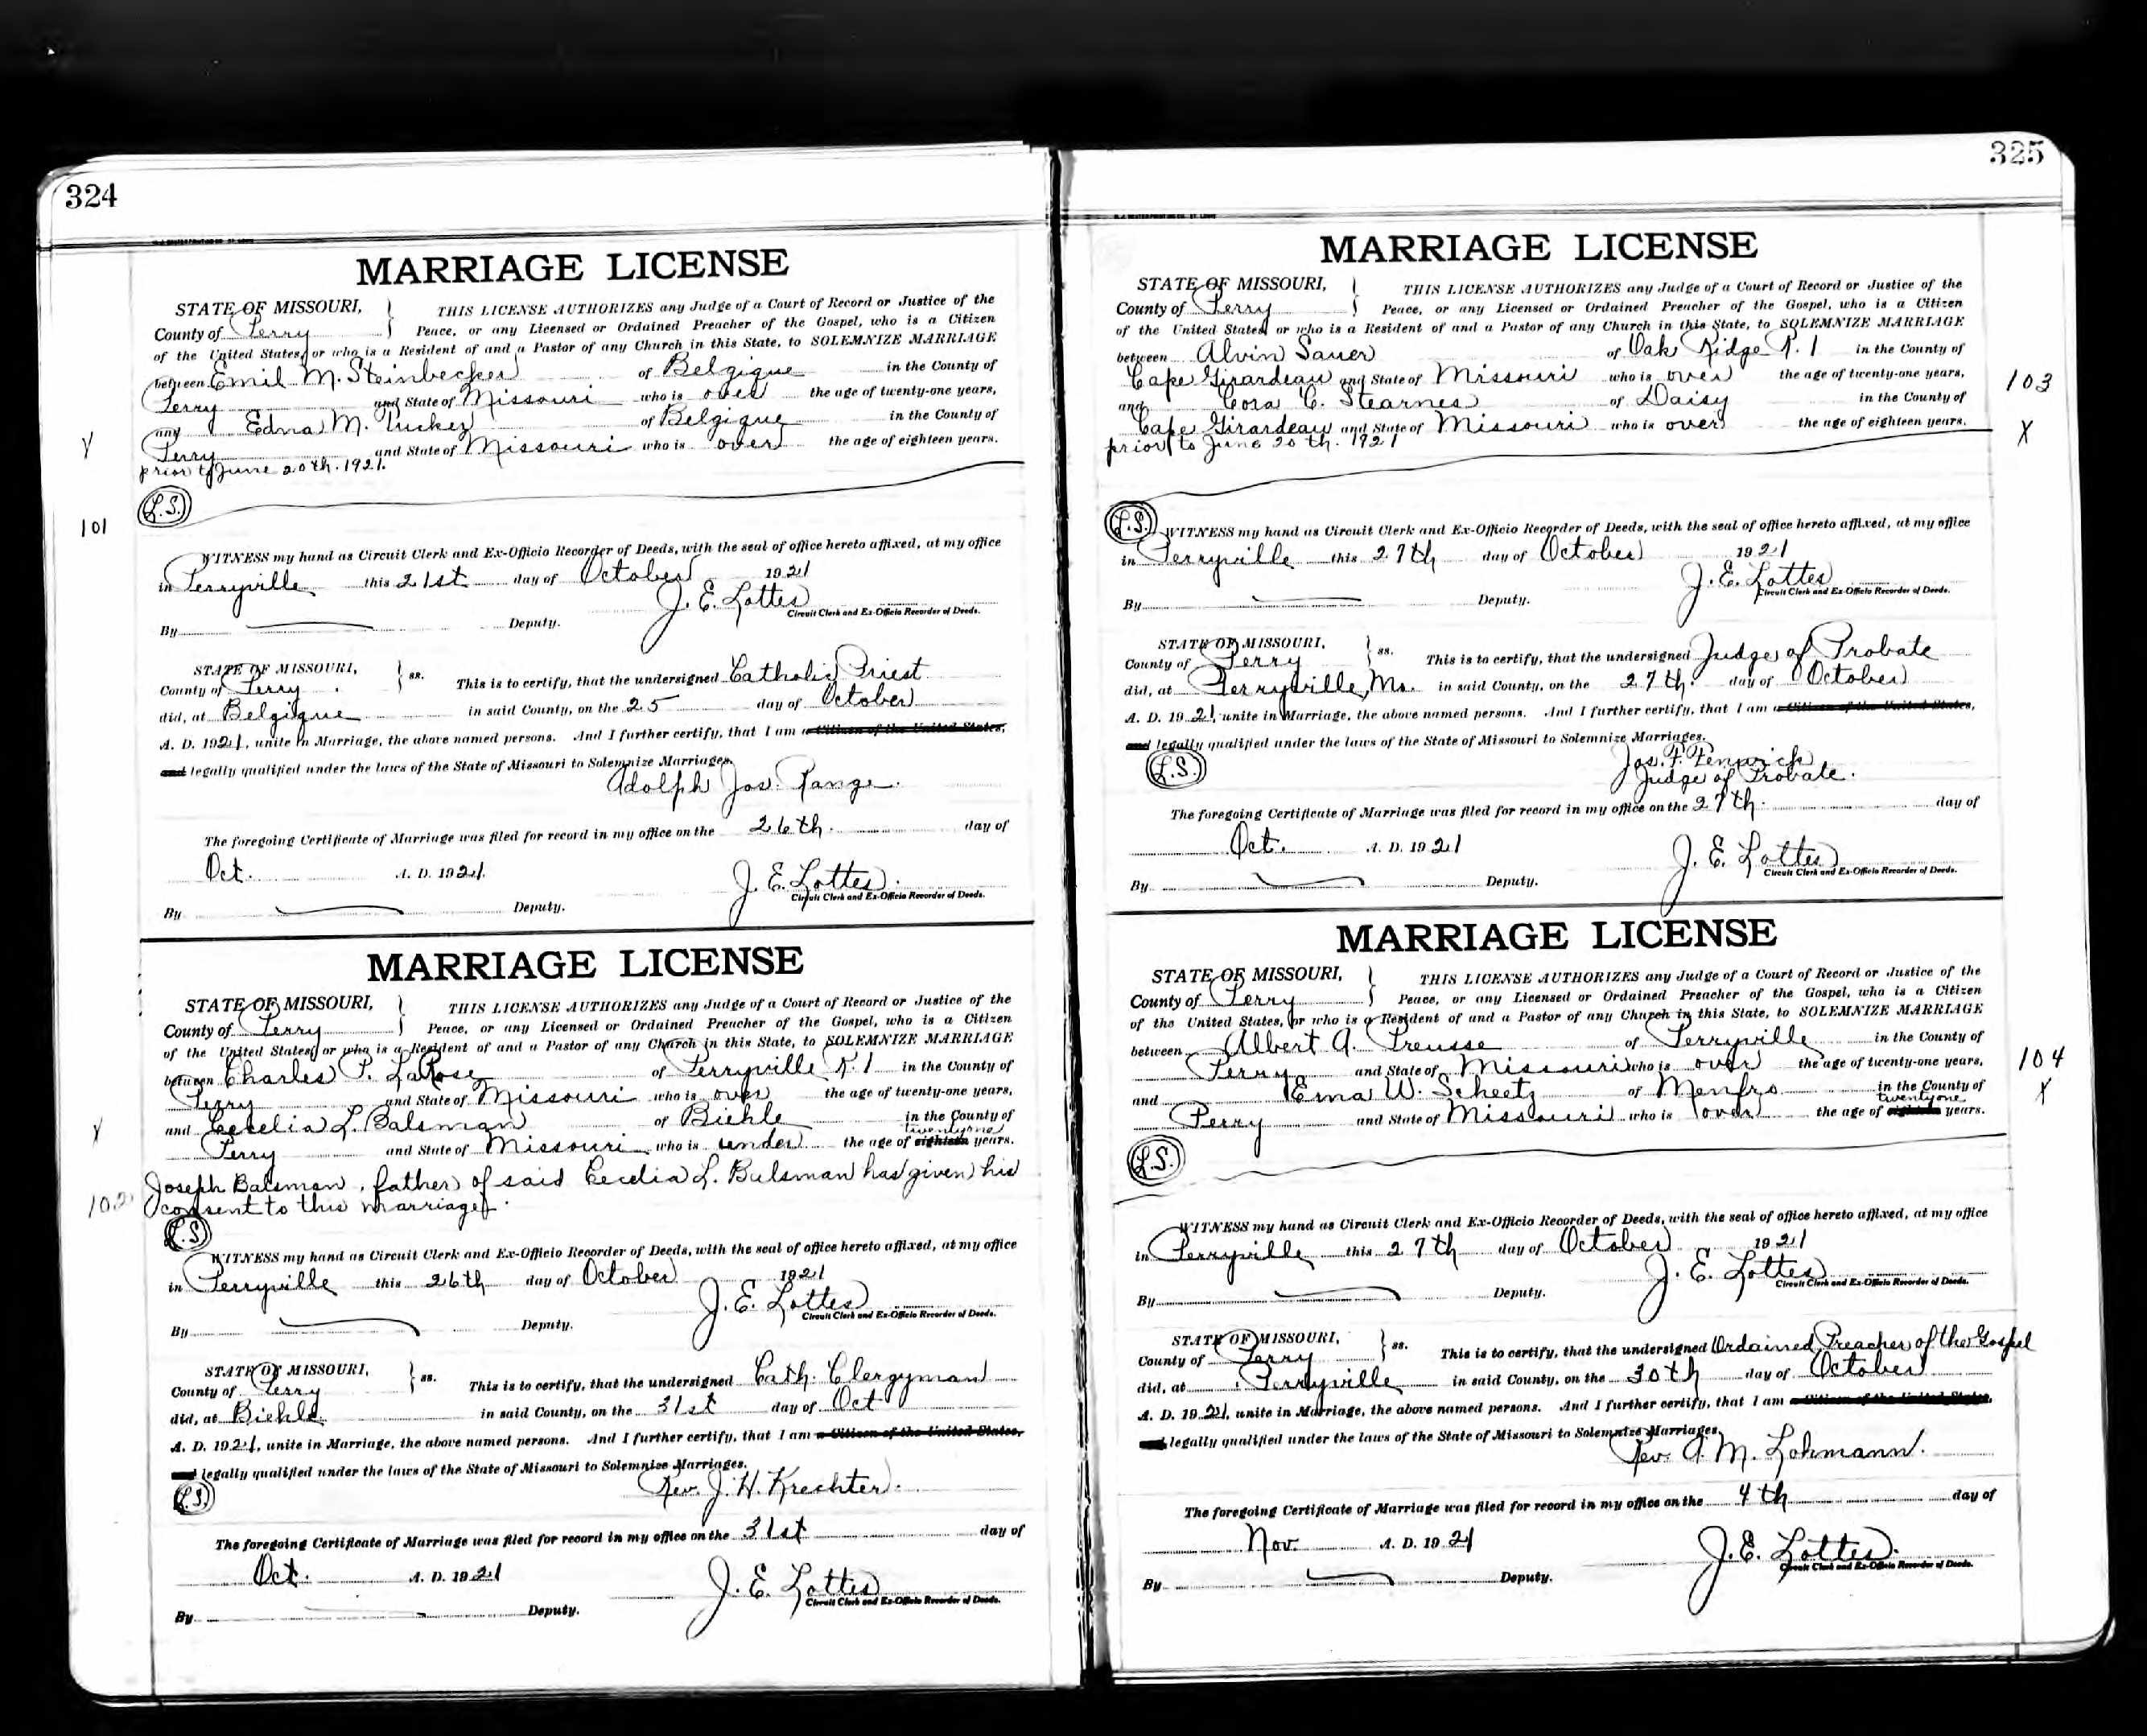 324
MARRIAGE LICENSE
STATE OF MISSOURI, THIS LICENSE AUTHORIZES any Judge of a Court of Record or Justice of the
County of Perry Peace, or any Licensed or Ordained Preacher of the Gospel, who is a Citizen
of the United States, or who is a Resident of and a Pastor of any Church in this State, to SOLEMNIZE MARRIAGE
between Emil M. Steinbecker of Belgique in the County of
Perry and State of Missouri who is over the age of twenty-one years,
any Edna M. of Belgique in the County of
Perry and State of Missouri who is over the age of eighteen years.
prior to June 20th. 1921.
Y
(L.S.)
101
WITNESS my hand as Circuit Clerk and Ex-Officio Recorder of Deeds, with the seal of office hereto affixed, at my office
in Perryville this 21st day of October 1921
J. E. Lottes
Circuit Clerk and Ex-Officio Recorder of Deeds.
By Deputy.
STATE OF MISSOURI,
County of Perry ss. This is to certify, that the undersigned Catholic Priest
did, at Belgique in said County, on the 25 day of October
A. D. 1921, unite in Marriage, the above named persons. And I further certify, that I am a Citizen of the United States,
and legally qualified under the laws of the State of Missouri to Solemnize Marriages.
Adolph Jos. Range.
The foregoing Certificate of Marriage was filed for record in my office on the 26th. day of
Oct. A. D. 1921.
J. E. Lottes.
Circuit Clerk and Ex-Officio Recorder of Deeds.
By Deputy.
MARRIAGE LICENSE
STATE OF MISSOURI, THIS LICENSE AUTHORIZES any Judge of a Court of Record or Justice of the
County of Perry Peace, or any Licensed or Ordained Preacher of the Gospel, who is a Citizen
of the United States, or who is a Resident of and a Pastor of any Church in this State, to SOLEMNIZE MARRIAGE
between Charles P. LaRose of Perryville R. 1 in the County of
Perry and State of Missouri who is over the age of twenty-one years,
and Cecelia L. Balsman of Biehle in the County of
twentyone
Perry and State of Missouri who is under the age of eighteen years.
Y
Joseph Balsman, father of said Cecelia L. Bulsman has given his
102
consent to this marriage.
(L.S)
WITNESS my hand as Circuit Clerk and Ex-Officio Recorder of Deeds, with the seal of office hereto affixed, at my office
in Perryville this 26th day of October 1921
J. E. Lottes
Circuit Clerk and Ex-Officio Recorder of Deeds.
By Deputy.
STATE OF MISSOURI,
County of Perry ss. This is to certify, that the undersigned Cath. Clergyman
did, at Biehle in said County, on the 31st day of Oct
A. D. 1921, unite in Marriage, the above named persons. And I further certify, that I am a Citizen of the United States,
and legally qualified under the laws of the State of Missouri to Solemnize Marriages.
Rev. J. H. Krechter.
(L.S.)
The foregoing Certificate of Marriage was filed for record in my office on the 31st day of
Oct. A. D. 1921
J. E. Lottes
Circuit Clerk and Ex-Officio Recorder of Deeds.
By Deputy.
325
MARRIAGE LICENSE
STATE OF MISSOURI, THIS LICENSE AUTHORIZES any Judge of a Court of Record or Justice of the
County of Perry Peace, or any Licensed or Ordained Preacher of the Gospel, who is a Citizen
of the United States, or who is a Resident of and a Pastor of any Church in this State, to SOLEMNIZE MARRIAGE
between Alvin Sauer of Oak Ridge R. 1 in the County of
Cape Girardeau and State of Missouri who is over the age of twenty-one years,
103
and Cora C. Stearnes of Daisy in the County of
Cape Girardeau and State of Missouri who is over the age of eighteen years.
X
prior to June 20th. 1921
(L.S.)
WITNESS my hand as Circuit Clerk and Ex-Officio Recorder of Deeds, with the seal of office hereto affixed, at my office
in Perryville this 27th day of October 1921
J. E. Lottes
Circuit Clerk and Ex-Officio Recorder of Deeds.
By Deputy.
STATE OF MISSOURI,
County of Perry ss. This is to certify, that the undersigned Judge of Probate
did, at Perryville, Mo. in said County, on the 27th. day of October
A. D. 1921, unite in Marriage, the above named persons. And I further certify, that I am a Citizen of the United States,
and legally qualified under the laws of the State of Missouri to Solemnize Marriages.
Jos. F. Fenwick
(L.S.)
Judge of Probate.
The foregoing Certificate of Marriage was filed for record in my office on the 27th. day of
Oct. A. D. 1921
J. E. Lottes
Circuit Clerk and Ex-Officio Recorder of Deeds.
By Deputy.
MARRIAGE LICENSE
STATE OF MISSOURI, THIS LICENSE AUTHORIZES any Judge of a Court of Record or Justice of the
County of Perry Peace, or any Licensed or Ordained Preacher of the Gospel, who is a Citizen
of the United States, or who is a Resident of and a Pastor of any Church in this State, to SOLEMNIZE MARRIAGE
between Albert A. Preusse of Perryville in the County of
Perry and State of Missouri who is over the age of twenty-one years,
104
and Erna W. Scheetz of Menfro in the County of
X
twentyone
Perry and State of Missouri who is over the age of eighteen years.
(L.S.)
WITNESS my hand as Circuit Clerk and Ex-Officio Recorder of Deeds, with the seal of office hereto affixed, at my office
in Perryville this 27th day of October 1921
J. E. Lottes
Circuit Clerk and Ex-Officio Recorder of Deeds.
By Deputy.
STATE OF MISSOURI,
County of Perry ss. This is to certify, that the undersigned Ordained Preacher of the Gospel
did, at Perryville in said County, on the 30th day of October
A. D. 1921, unite in Marriage, the above named persons. And I further certify, that I am a Citizen of the United States,
and legally qualified under the laws of the State of Missouri to Solemnize Marriages.
Rev. A. M. Lohmann.
The foregoing Certificate of Marriage was filed for record in my office on the 4th day of
Nov. A. D. 1921
J. E. Lottes.
Circuit Clerk and Ex-Officio Recorder of Deeds.
By Deputy.